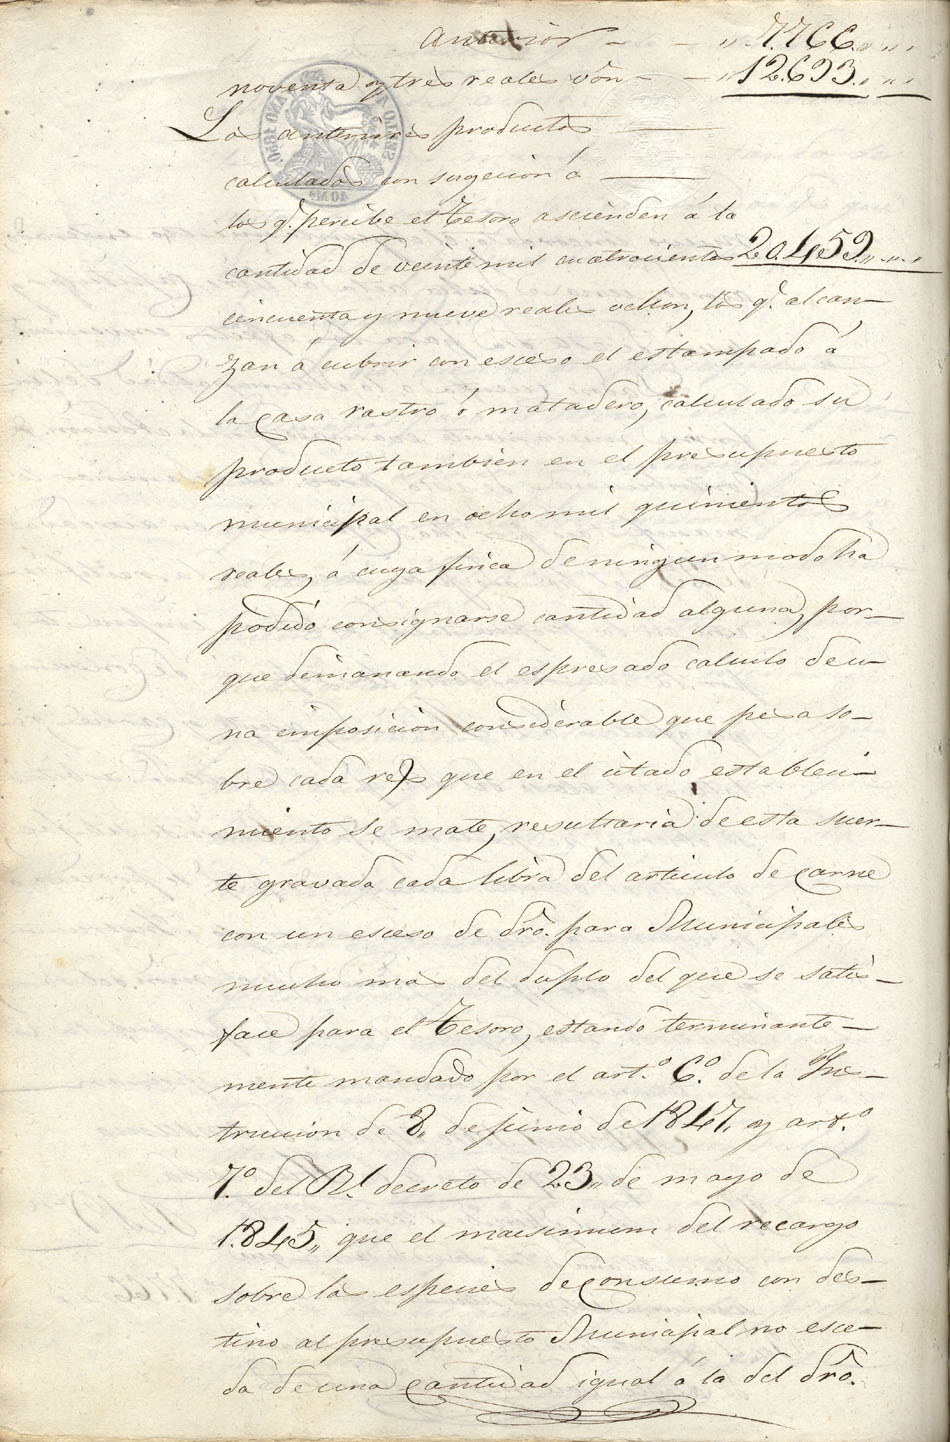 Anterior - - „ 7.766. „ „ „
noventa y tres reales vôn - - „ 12.693. „ „ „
Los anteriores productos
calculados con sugecion á
los q.^e percibe el Tesoro ascienden á la
cantidad de veinte mil cuatrocientos 20.459. „ „ „
cincuenta y nueve reales vellon, los q.^e alcan-
zan á cubrir con esceso el estampado á
la casa rastro ó matadero, calculado su
producto tambien en el presupuesto
municipal en ocho mil quinientos
reales, á cuya finca de ningun modo ha
podido consignarse cantidad alguna, por-
que dimanando el espresado calculo de u-
na imposicion considerable que pesa so-
bre cada res que en el citado estableci-
miento se mate, resultaria de esta suer-
te gravada cada libra del articulo de carne
con un esceso de dr̂o. para Municipales
mucho mas del duplo del que se satis-
face para el Tesoro, estando terminante-
mente mandado por el art.º 6.º de la Yns-
truccion de 8,, de junio de 1847,, y art.º
7.º del R.^l decreto de 23,, de mayo de
1845,, que el macsimum del recargo
sobre las especies de consumo con des-
tino al presupuesto Municipal no esce-
da de una cantidad igual á la del dr̂o.